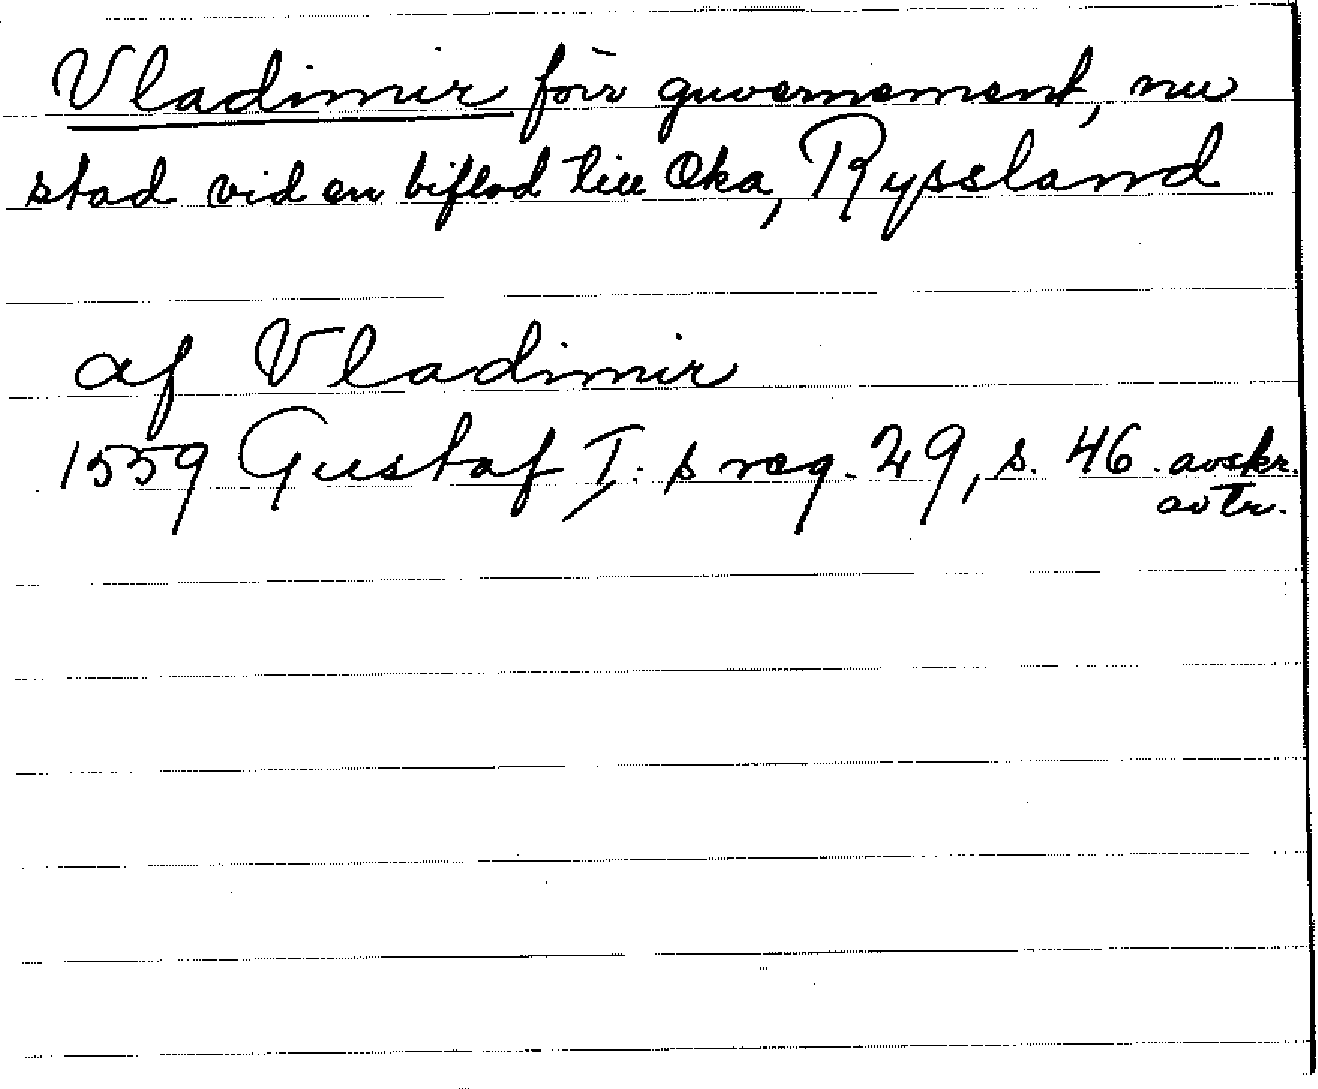 Vladimir förr guvernement, nu
stad vid en biflod till Oka, Ryssland
af Vladimir
1559 Gustaf I:s reg. 29, s. 46 avskr.
avtr.